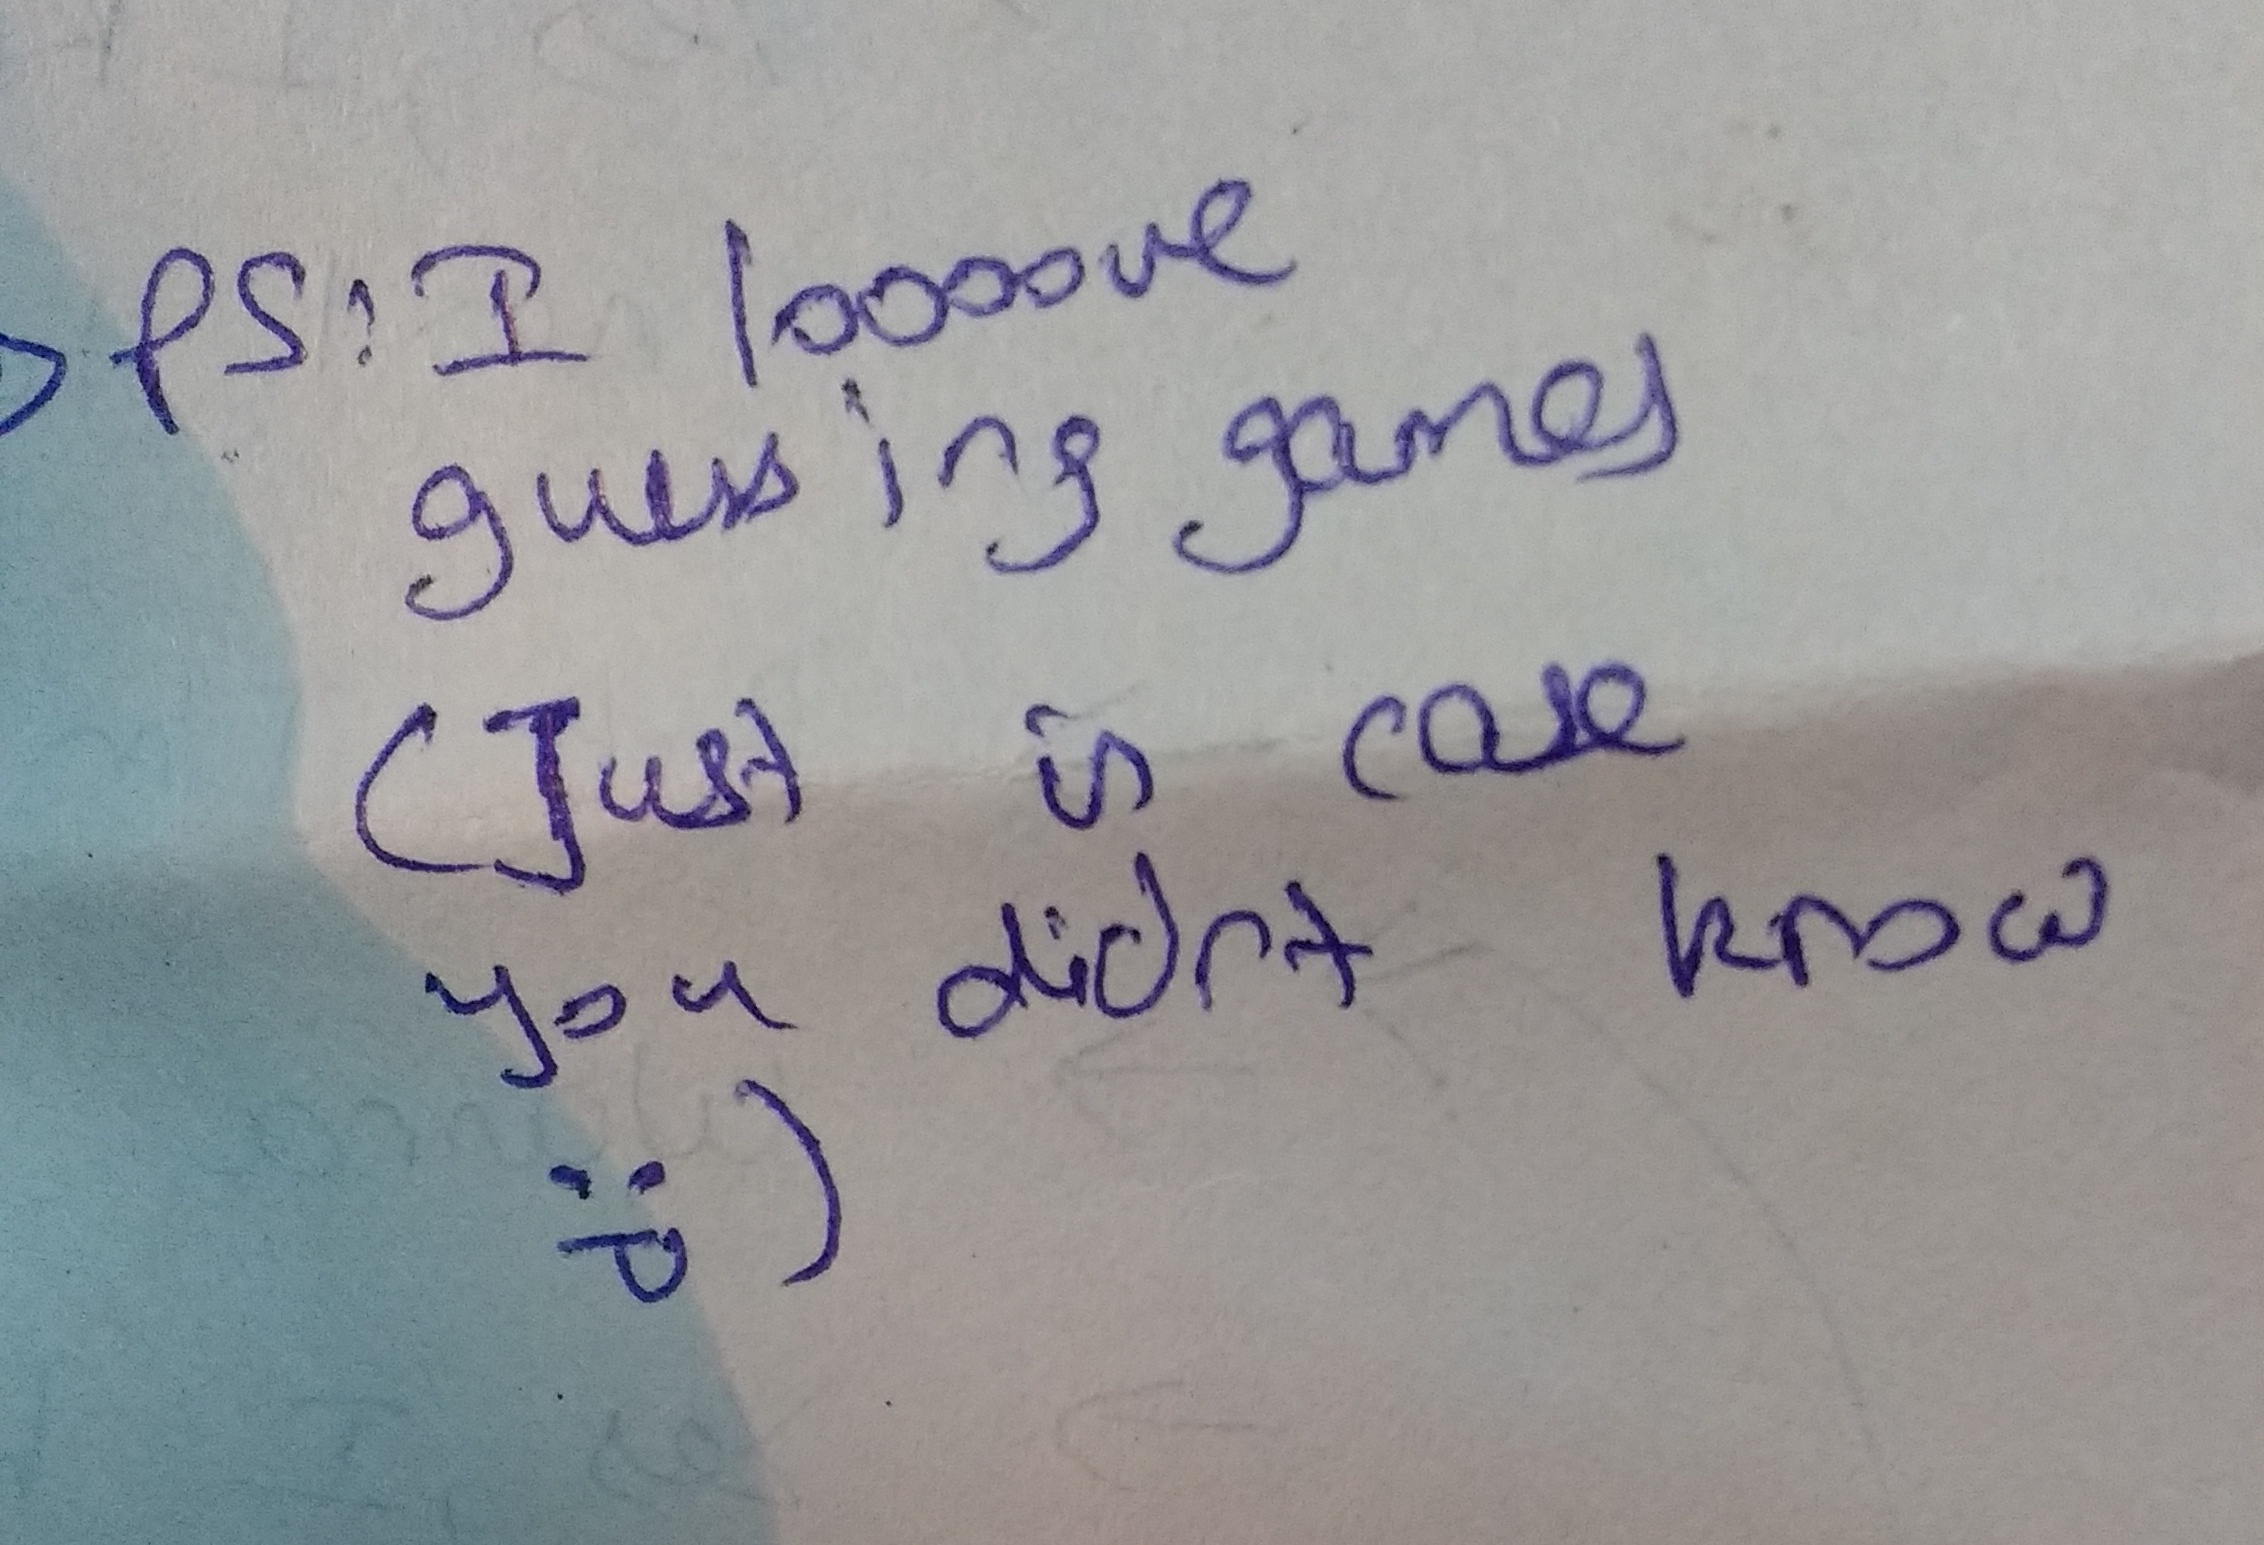 PS: I loooove
guessing games
(Just in case
you didnt know
:P)